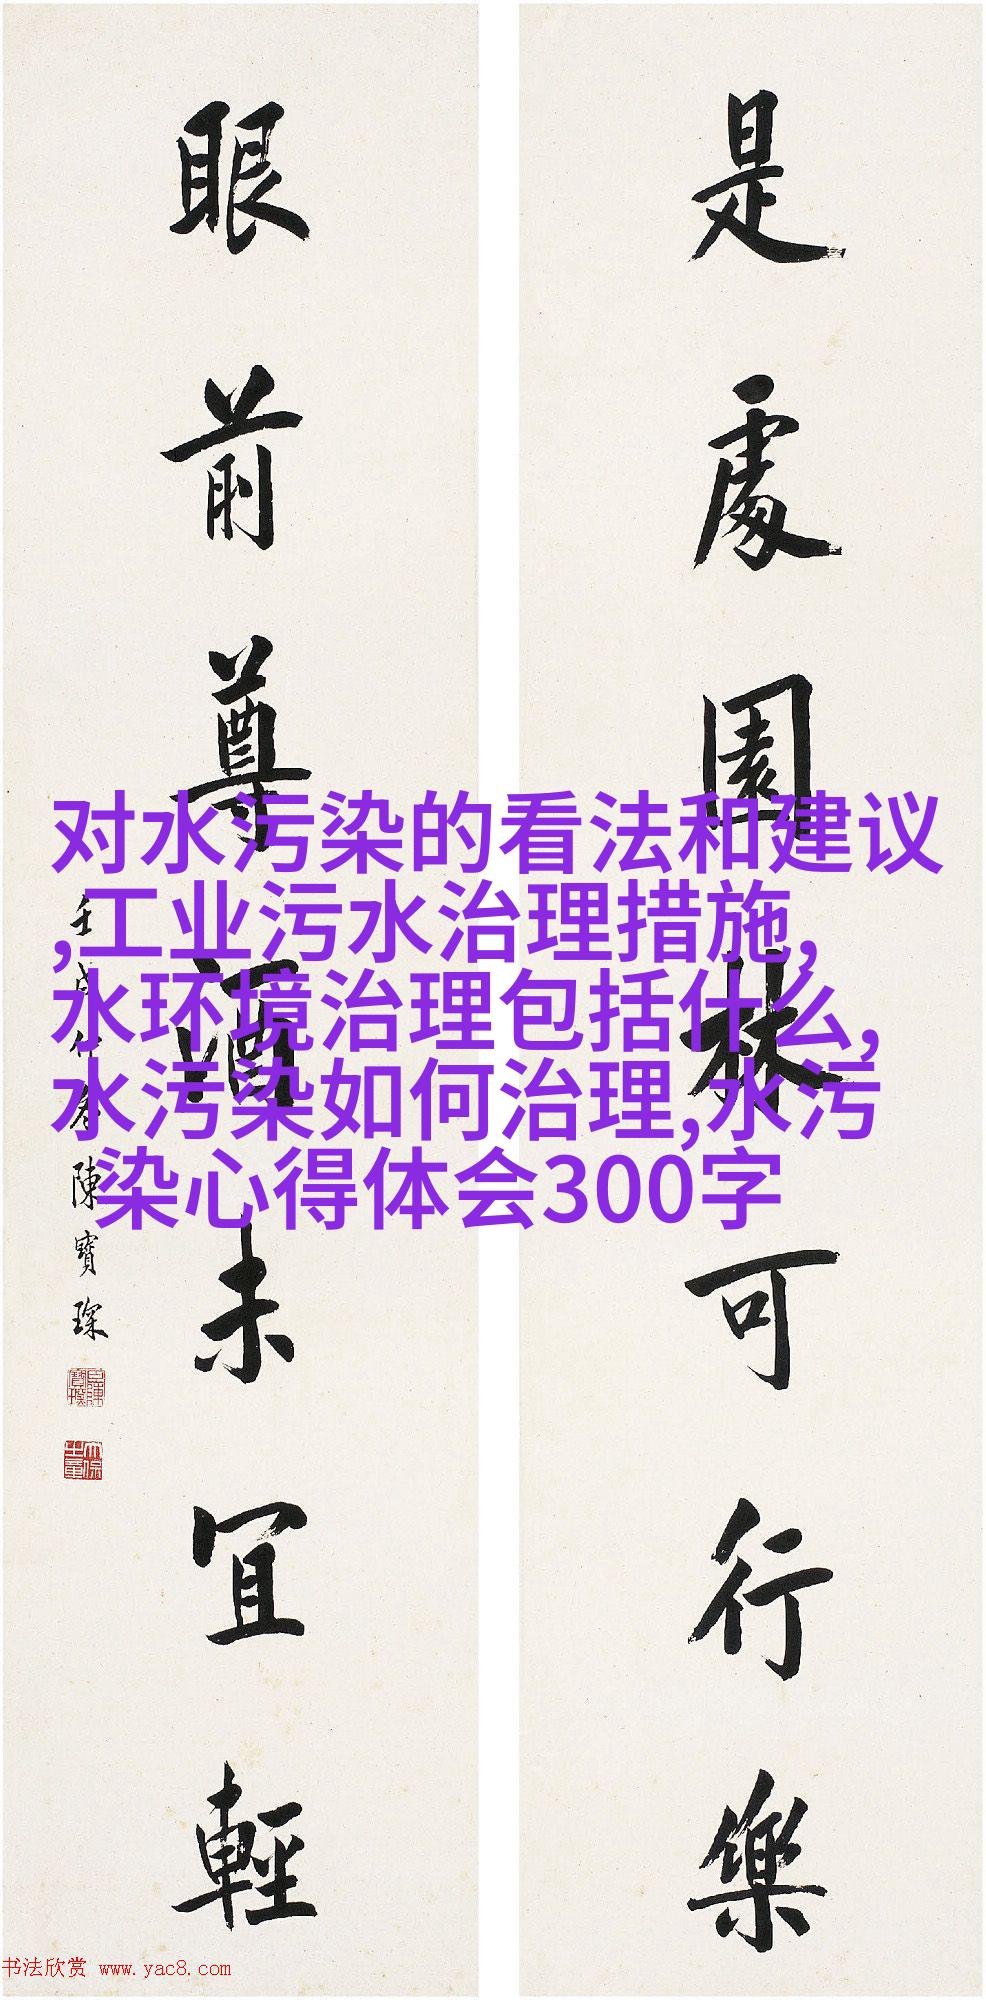 是處園林可行樂
眼前尊酒未宜輕
壬戌仲春陳寶琛
对水污染的看法和建议
,工业污水治理措施,
水环境治理包括什么,
水污染如何治理,水污
染心得体会300字
书法欣赏 www.yac8.com